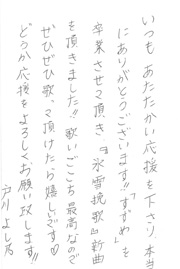 いつもあたたかい応援を下さり本当
にありがとうございます!!『すずめ』を
卒業させて頂き『氷雪挽歌』新曲
を頂きました!!歌いごこち最高なので
ぜひぜひ歌って頂けたら嬉しいです♡
どうか応援をよろしくお願い致します!!
戸川よし乃